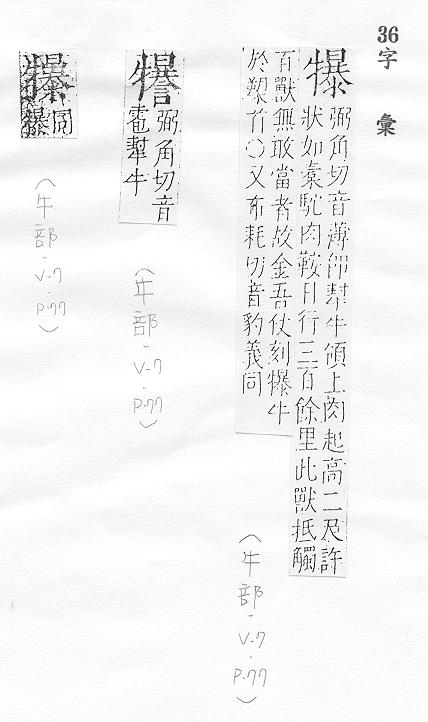 36字 彙
犦
弼角切音薄即犎牛領上肉起高二尺許
狀如橐駝肉鞍日行三百餘里此獸抵觸
百獸無敢當者故金吾仗刻犦牛
於槊首○又布耗切音豹義同
(牛部·V.7·P.77)
弼角切音
雹犎牛
(牛部·V.7·P.77)
同
(牛部·V.7·P.77)